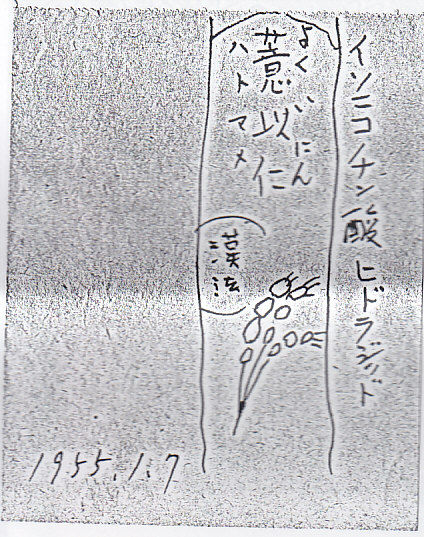 イソニコチン酸ヒドラジッド
よくいにん
薏以仁
ハトマメ
漢法
1955.1.7